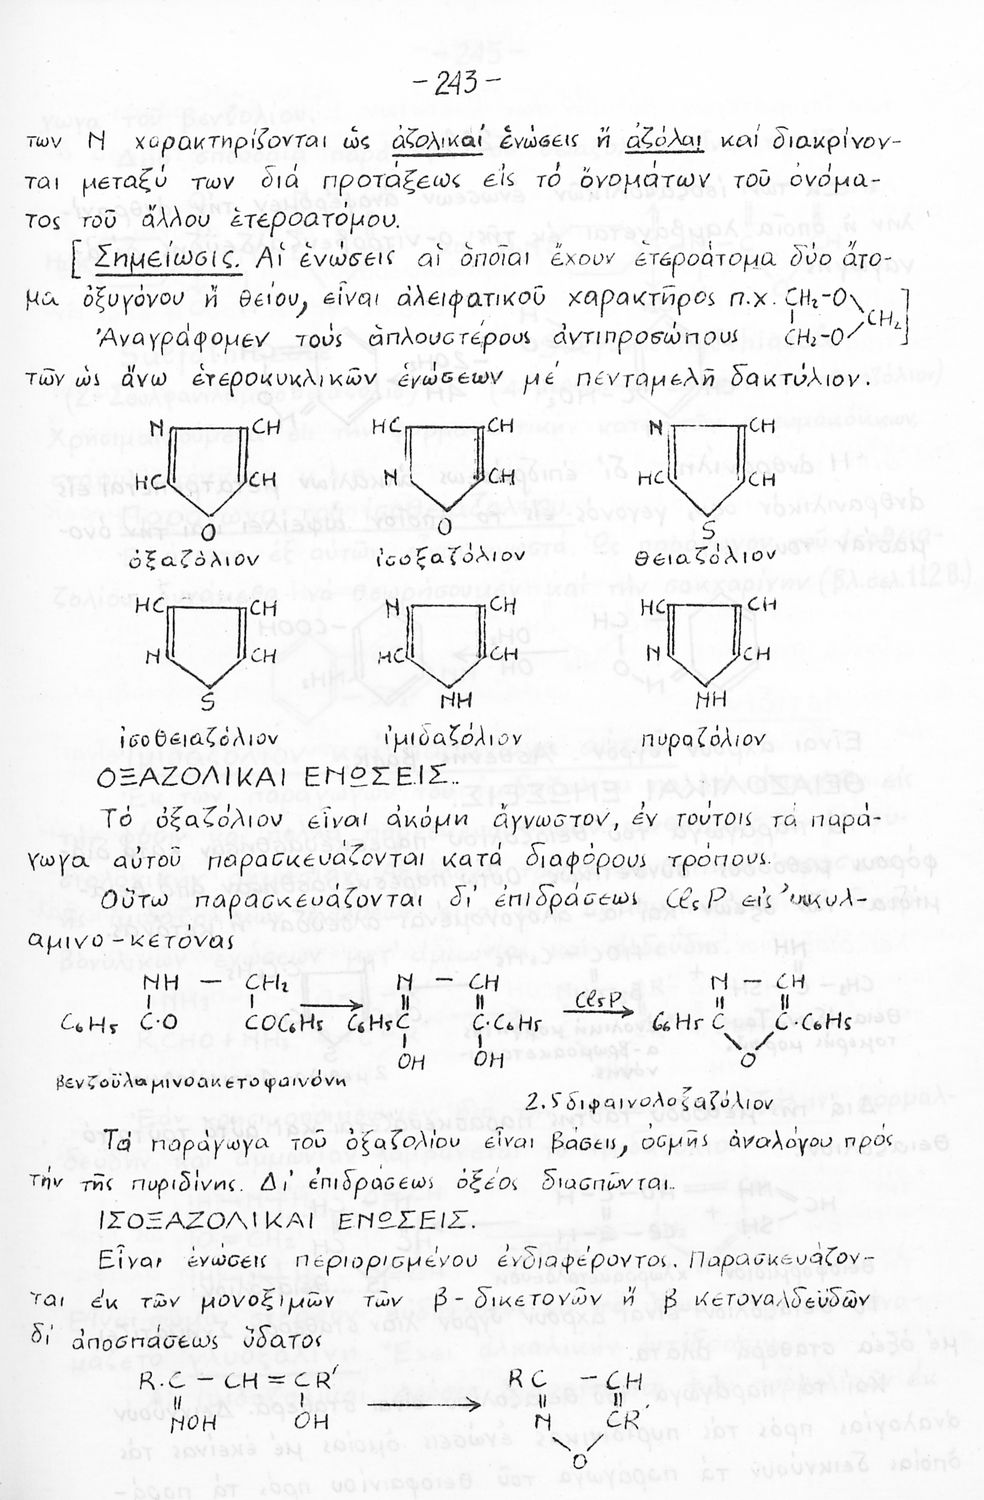 -243-
των Ν χαρακτηρίζονται ὡς ἀζολικαί ἑνώσεις ἤ ἀζόλαι καί διακρίνον-
ται μεταξύ των διά προτάξεως εἰς τό ὄνομάτων τοῦ ὀνόμα-
τος τοῦ ἄλλου ἑτεροατόμου.
[Σημείωσις. Αἱ ἑνώσεις αἱ ὁποῖαι ἔχουν ἑτεροάτομα δύο ἄτο-
μα ὀξυγόνου ἤ θείου, εἶναι ἀλειφατικοῦ χαρακτῆρος π.χ. CH₂-O
CH₂]
Ἀναγράφομεν τούς ἁπλουστέρους ἀντιπροσώπους CH₂-O
τῶν ὡς ἄνω ἑτεροκυκλικῶν ἑνώσεων μέ πενταμελῆ δακτύλιον.
N CH HC CH N CH
HC CH N CH HC CH
O O S
ὀξαζόλιον ἰσοξαζόλιον θειαζόλιον
HC CH N CH HC CH
N CH HC CH N CH
S NH NH
ἰσοθειαζόλιον ἰμιδαζόλιον πυραζόλιον
ΟΞΑΖΟΛΙΚΑΙ ΕΝΩΣΕΙΣ..
Τό ὀξαζόλιον εἶναι ἀκόμη ἄγνωστον, ἐν τούτοις τά παρά-
γωγα αὐτοῦ παρασκευάζονται κατά διαφόρους τρόπους.
Οὕτω παρασκευάζονται δι' ἐπιδράσεως Cl₅P εἰς
αμινο-κετόνας
NH — CH₂ N — CH N — CH
C₆H₅ C·O COC₆H₅ C₆H₅C C·C₆H₅ Cl₅P C₆H₅ C C·C₆H₅
OH OH O
βενζοϋλαμινοακετοφαινόνη
2.5 διφαινολοξαζόλιον
Τά παράγωγα τοῦ ὀξαζολίου εἶναι βάσεις, ὀσμῆς ἀναλόγου πρός
τήν τῆς πυριδίνης. Δι' ἐπιδράσεως ὀξέος διασπῶνται..
ΙΣΟΞΑΖΟΛΙΚΑΙ ΕΝΩΣΕΙΣ.
Εἶναι ἑνώσεις περιορισμένου ἐνδιαφέροντος. Παρασκευάζον-
ται ἐκ τῶν μονοξιμῶν τῶν β-δικετονῶν ἤ β κετοναλδεϋδῶν
δι' ἀποσπάσεως ὕδατος
R·C — CH = CR' RC — CH
NOH OH N CR'
O